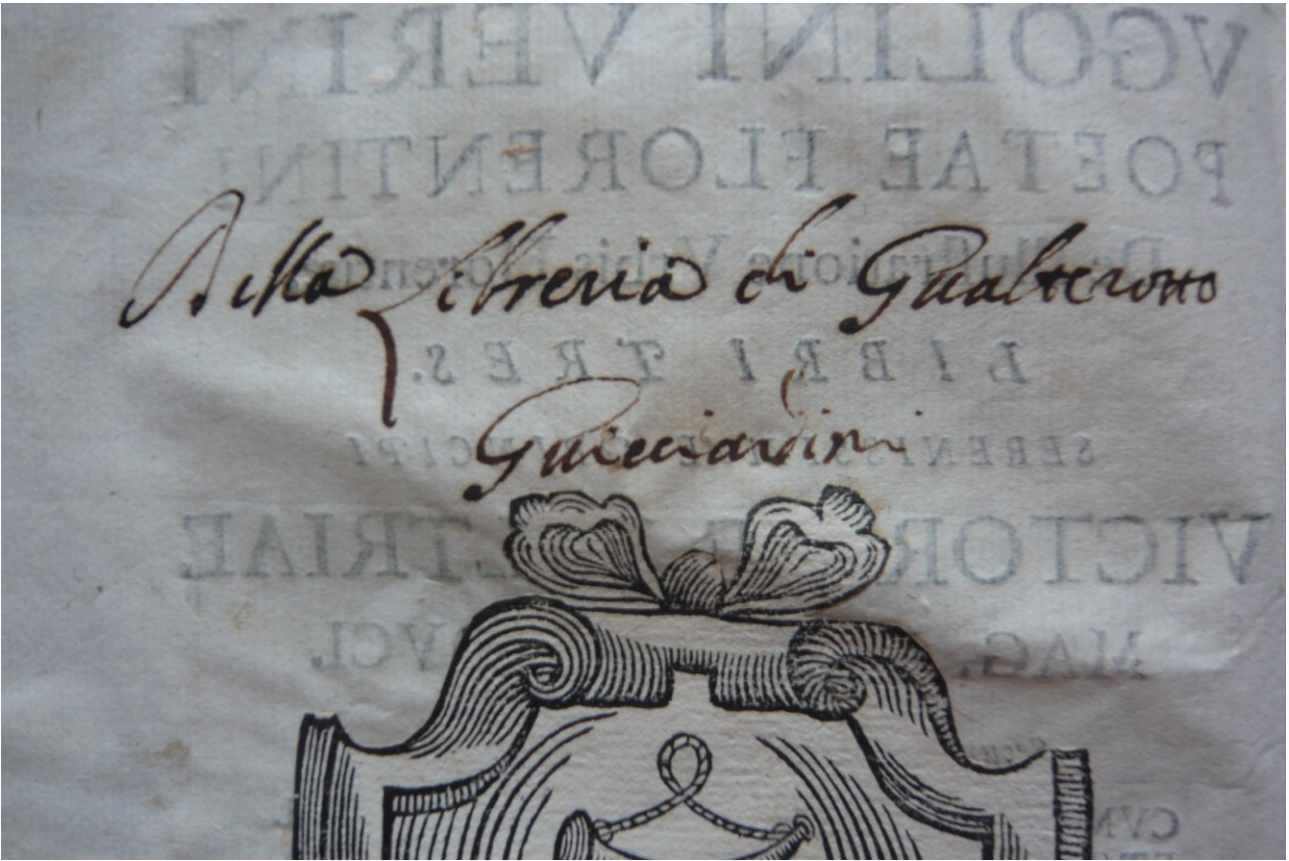 VGOLINI VERINI
POETAE FLORENTINI
Della Libreria di Gualterotto
De Illustratione Vrbis Florentiae
LIBRI TRES.
Guicciardini
SERENISSIMAE PRINCIPI
VICTORIAE ETRIAE
MAG. VCI.